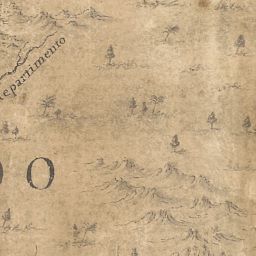 epartimento
O O